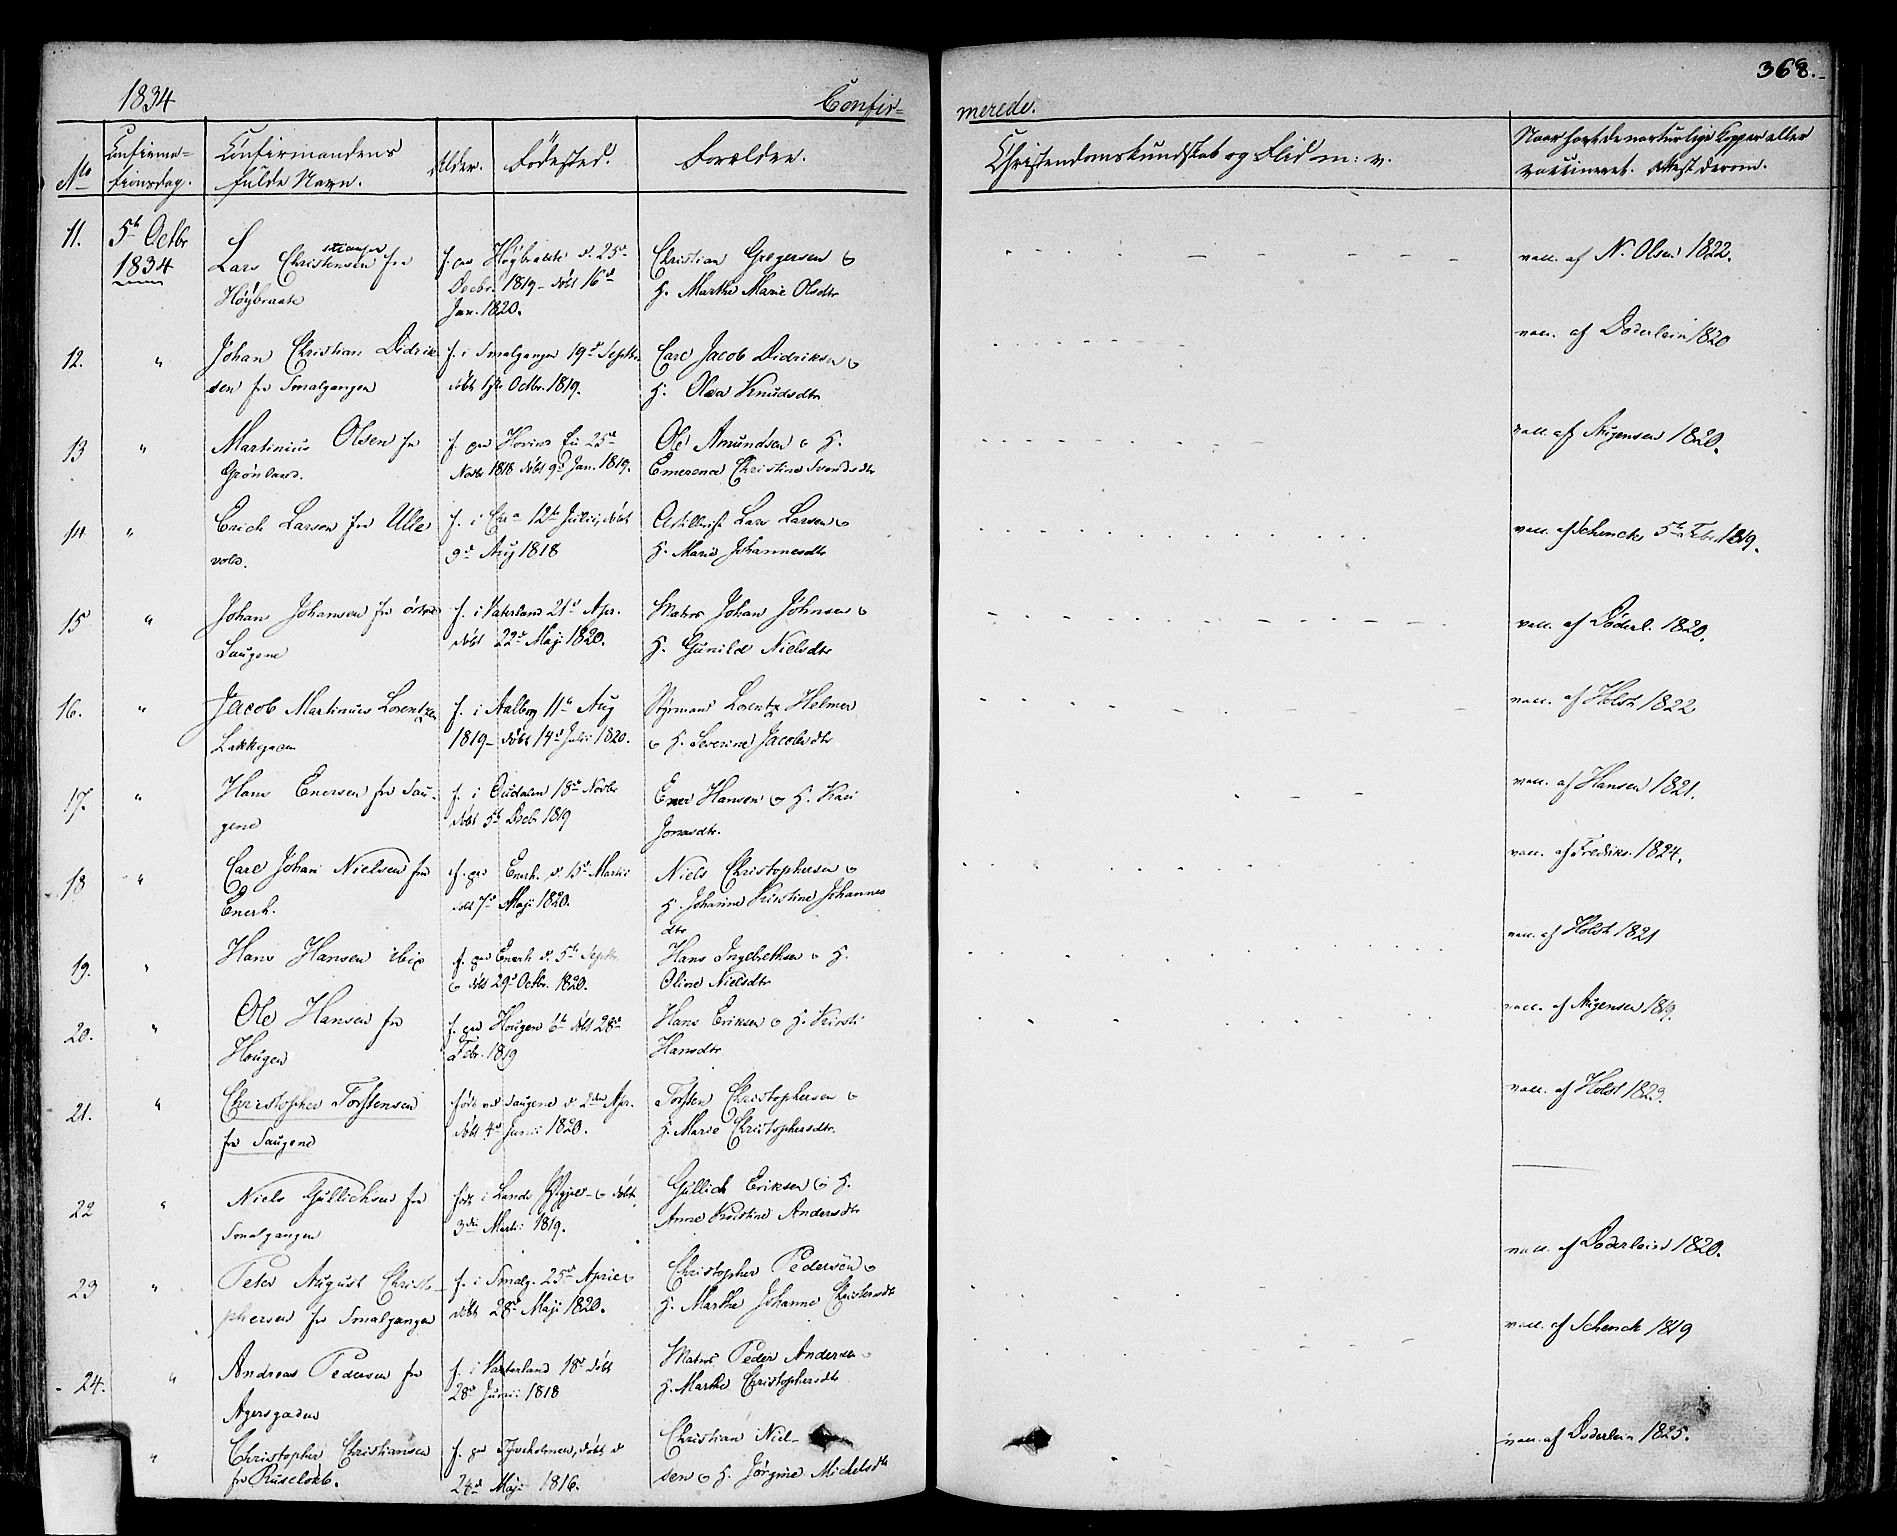 1834
Confir=
merede.
368.
No
Confirma=
tionsdag.
Confirmandens
fulde Navn.
Alder.
Fødested.
Forældre.
Christendomskundskab og Flid m: v.
Naar havt de naturlige Kopper eller
vaccineret. Attest derom.
11.
5te Octbr
1834
Lars Christensen fra
Høybraate
f. paa Høybraate d. 25de
Decbr. 1819 - døbt 16de
Jan. 1820.
Christian Gregersen o
H. Marthe Marie Olsdtr
vacc. af N. Olsen 1822.
12.
"
Johan Christian Didrik
sen fra Smalgangen
f. i Smalgangen 19de Septbr
døbt Octbr. 1819.
Carl Jacob Didriksen o
H. Olea Knudsdtr
vacc. af Døderlein 1820
13
"
Martinius Olsen fra
Grønland.
f. paa Hovins Ei 25de
Novbr 1818 døbt 9de Jan. 1819.
Ole Amundsen o H.
Emerence Christine Svendsdtr
vacc. af Augensen 1820.
14
"
Erich Larsen fra Ulle
vold.
f. i Chra 12te Julii, døbt
9de Aug 1818
Artillerist Lars Larsen o
H. Marie Johannesdtr
vacc. af Schenck 5te Febr. 1819.
15
"
Johan Johansen fra østre
Saugene
f. i Vaterland 21de Apr.
døbt 22de Maji 1820.
Matros Johan Johnsen o
H. Gunild Nielsdtr
vacc. af Døderl. 1820.
16.
"
Jacob Martinus Lorentzen
Lakkegaden
f. i Aalborg 11te Aug
1819 - døbt 14de Julii 1820.
Styrmand Lorentz Helmer
o H. Severine Jacobsdtr
vacc. af Holst 1822
17.
"
Hans Enersen fra Sau-
gene
f. i Oudalen 18de Novbr
døbt 5te Decbr 1819
Ener Hansen o H. Kari
Jonasdtr.
vacc. af Hansen 1821.
18
"
Carl Johan Nielsen fra
Enerh.
f. paa Enerh. d. 15de Martii
døbt 7de Maji 1820.
Niels Christophersen o
H. Johanne Kirstine Johannes
dtr
vacc. af Frediks. 1824.
19.
"
Hans Hansen ibid
f. paa Enerh d. 5te Septbr.
o døbt 29de Octbr. 1820.
Hans Ingebrethsen o H.
Oline Nielsdtr
vacc. af Holst 1821
20.
"
Ole Hansen fra
Hougen
f. paa Hougen 6te døbt 28de
Febr. 1819
Hans Eriksen o H. Kirsti
Hansdtr
vacc. af Augensen 1819.
21.
"
Christopher Torstensen
fra Saugene
født ved Saugene d 2den Apr.
døbt 4de Junii 1820.
Torsten Christophersen o
H. Marie Christophersdtr.
vacc. af Holst 1823.
22
"
Niels Gullichsen fra
Smalgangen
født i Lands o døbt
3die Martii 1819.
Gullich Eriksen o H.
Anne Kirstine Andersdtr
23
"
Peter August Christo-
phersen fra Smalgangen
f. i Smalg. 25de April o
døbt 28de Maji 1820.
Christopher Pedersen o
H. Marthe Johanne Christensdtr
vacc. af Døderlein 1820.
24.
"
Andreas Pedersen fra
Agersgaden
f. i Vaterland 18de døbt
28de Junii 1818
Matros Peder Andersen o
H. Marthe Christophersdtr
vacc. af Schenck 1819
"
Christopher Christiansen
fra Ruseløkb.
f. paa Tyveholmen, døbt d
24de Maji 1816.
Christian Niel-
sen o H. Jørgine Michelsdtr
vacc. af Døderlein 1825.